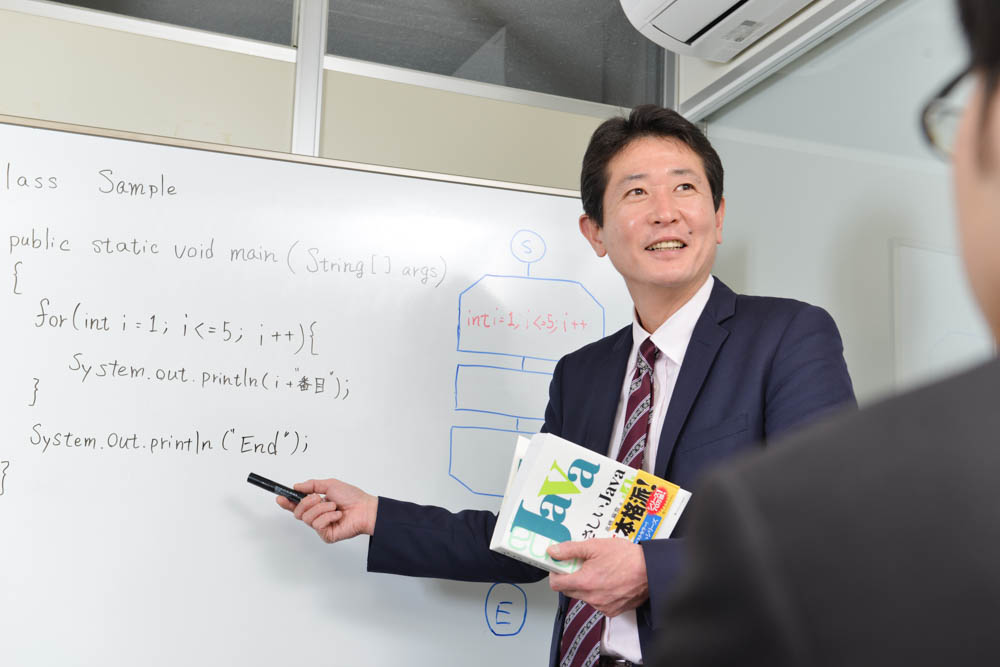 lass Sample
public static void main (String[] args)
{
for(int i=1; i<=5; i++){
System.out.println(i+"番目");
}
System.out.println("End");
}
S
int i=1; i<=5; i++
E
Java
さしいJava
本格派!